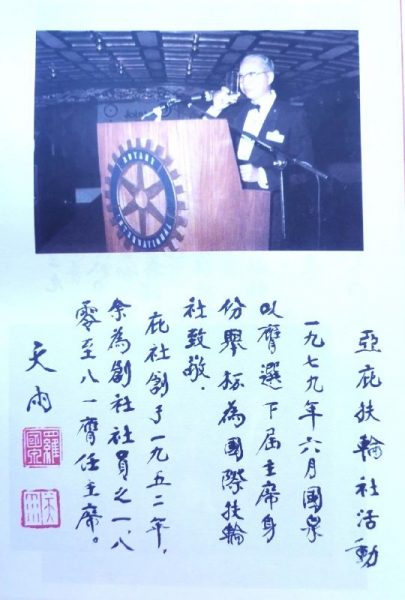 ROTARY
INTERNATIONAL
亞庇扶輪社活動
一九七九年六月國泉
以膺選下屆主席身
份舉杯為國際扶輪
社致敬.
庇社創于一九五二年,
余為創社社員之一,八
零至八一膺任主席。
天雨
羅國泉